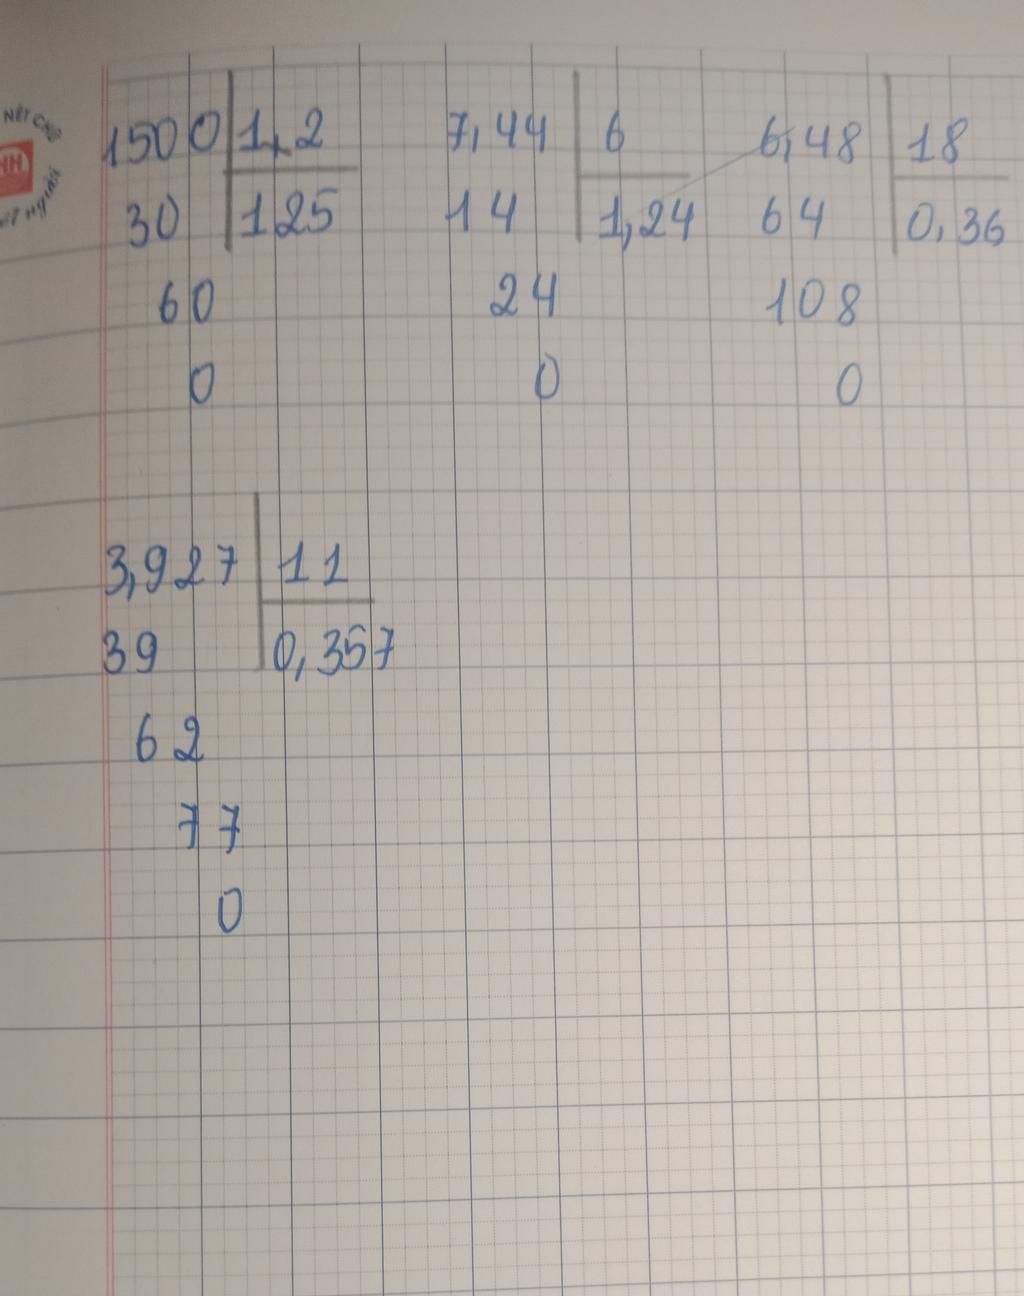 NÉT CHỮ
HH
1500 1,2 7,44 6 6,48 18
30 125 14 1,24 64 0,36
60 24 108
0 0 0
3,927 11
39 0,357
62
77
0